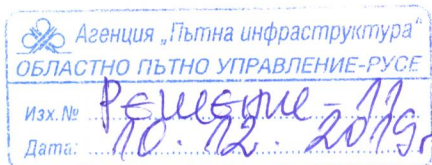 Агенция „Пътна инфраструктура“
ОБЛАСТНО ПЪТНО УПРАВЛЕНИЕ-РУСЕ
Изх.№ РЕШЕНИЕ-11
Дата: 10.12.2019г.